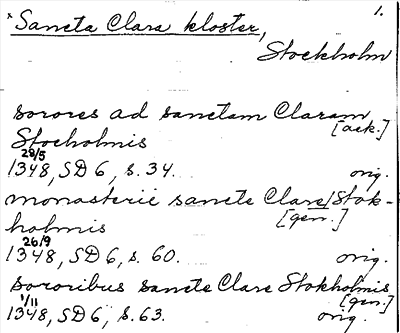 x Sancta Clara kloster, 1.
Stockholm
sorores ad sanctam Claram
[ack.]
Stocholmis
28/5
1348, SD 6, s. 34. orig.
monasterii sancte Clare/Stok-
[gen.]
holmis
26/9
1348, SD 6, s. 60. orig.
sororibus sancte Clare Stokholmis
[gen.]
1/11
1348, SD 6, s. 63. orig.